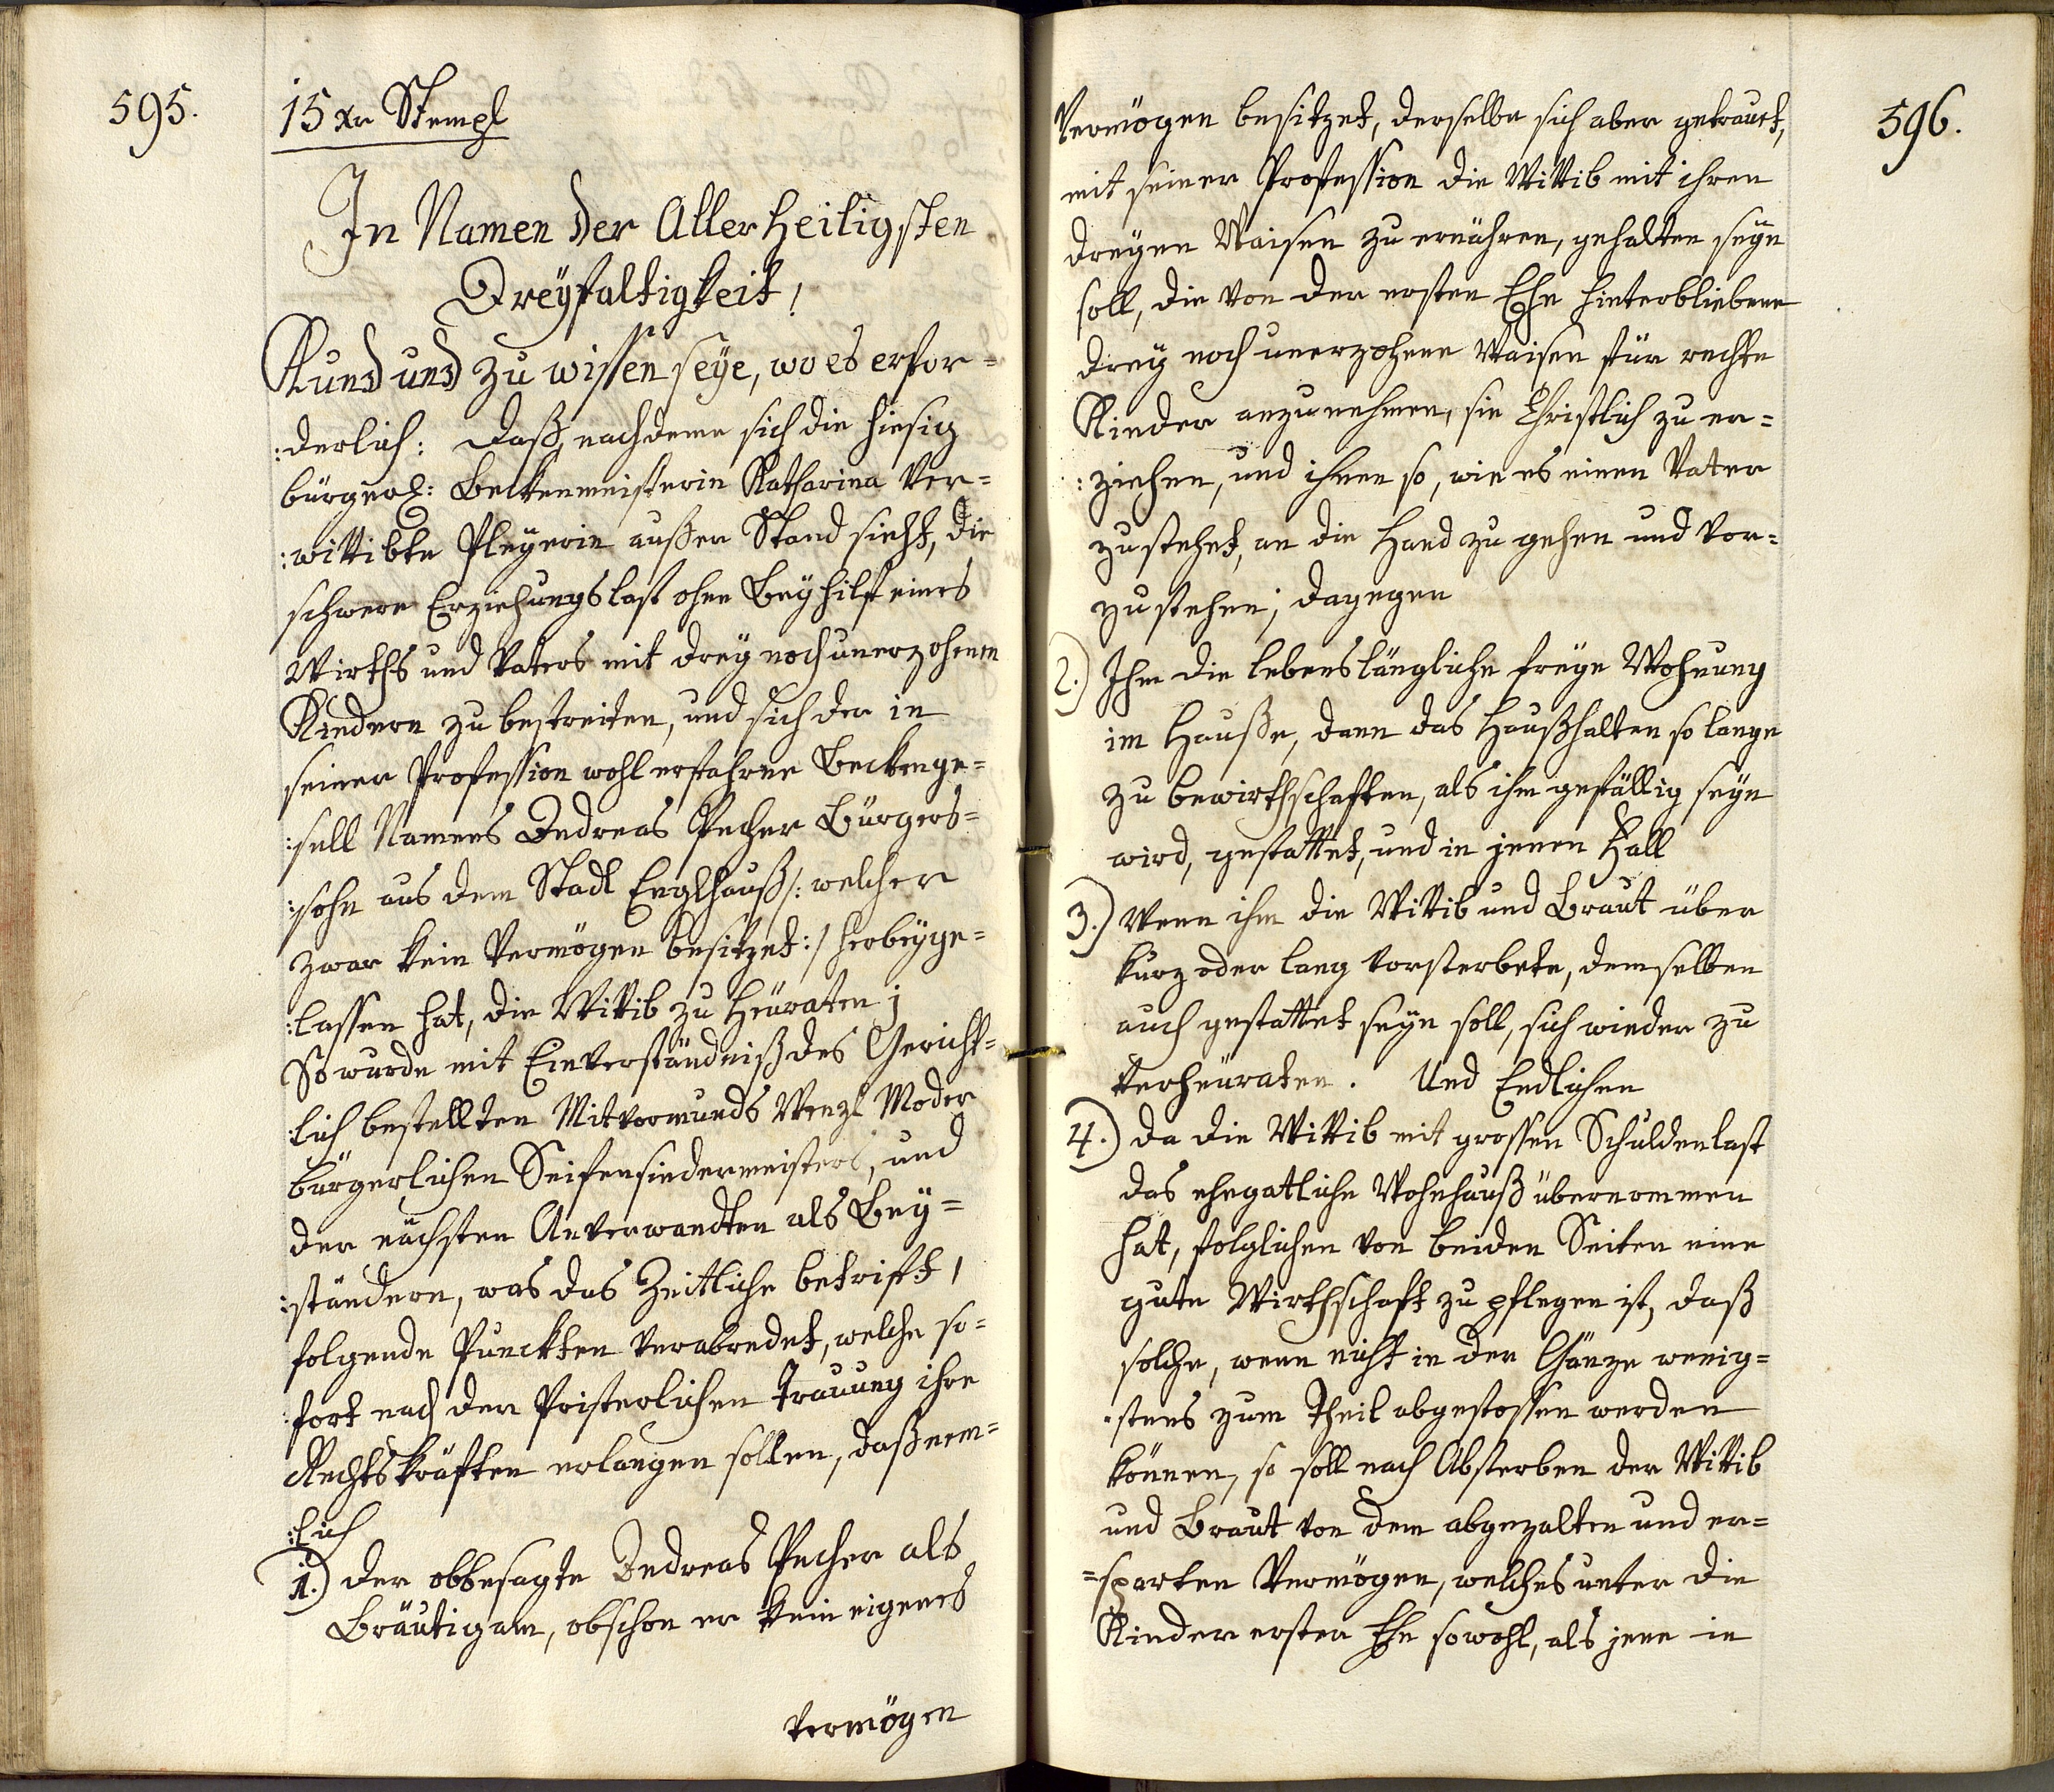 595.
15 xr Stempl
In Namen der Allerheiligsten
Dreyfaltigkeit!
Kund und zu wissen seye, wo es erfor=
:derlich: Daß, nachdeme sich die hiesig
bürgerl: Beckenmeisterin Katharina Ver=
:wittibte Pleyerin außer Stand sieht, die
schwere Erziehungslast ohne Beyhilf eines
Wirths und Vaters mit drey noch unerzohenen
Kindern zu bestreiten, und sich der in
seiner Profession wohl erfahrne Beckenge=
:sell Namens Andreas Pecher Bürgers=
:sohn aus dem Stadl Englhauß /: welcher
zwar kein Vermögen besitzet :/ herbeyge=
:lassen hat, die Wittib zu Heuraten;
So wurde mit Einverständniß des Gericht=
:lich bestellten Mitvormunds Wenzl Moder
bürgerlichen Seifensiedermeisters, und
der nächsten Anverwandten als Bey=
:ständern, was das Zeitliche betrifft,
folgende Punckten verabredet, welche so=
:fort nach der Pristerlichen Trauung ihre
Rechtskräfften erlangen sollen, daß nem=
:lich
1.) der obbesagte Andreas Pecher als
Bräutigam, obschon er kein eigenes
Vermögen
596.
Vermögen besitzet, derselbe sich aber getrauet,
mit seiner Profession die Wittib mit ihren
dreyen Waisen zu ernähren, gehalten seyn
soll, die von der ersten Ehe hinterbliebene
drey noch unerzohene Waisen für rechte
Kinder anzunehmen, sie Christlich zu er=
:ziehen, und ihnen so, wie es einen Vater
zustehet, an die Hand zu gehen und vor=
zustehen; dagegen
2.) Ihm die lebenslängliche freye Wohnung
im Hauße, dann das Haußhalten so lange
zu bewirthschafften, als ihm gefällig seyn
wird, gestattet, und in jenen Fall
3.) Wenn ihm die Wittib und Braut über
kurz oder lang vorsterbete, demselben
auch gestattet seyn soll, sich wieder zu
verheuraten. Und Endlichen
4.) da die Wittib mit grossen Schuldenlast
das ehegatliche Wohnhauß übernommen
hat, folglichen von beiden Seiten eine
gute Wirthschafft zu pflegen ist, daß
solche, wenn nicht in der Gänze wenig=
:stens zum Theil abgestossen werden
können, so soll nach Absterben der Wittib
und Braut von dem abgezalten und er=
=sparten Vermögen, welches unter die
Kinder erster Ehe sowohl, als jene in